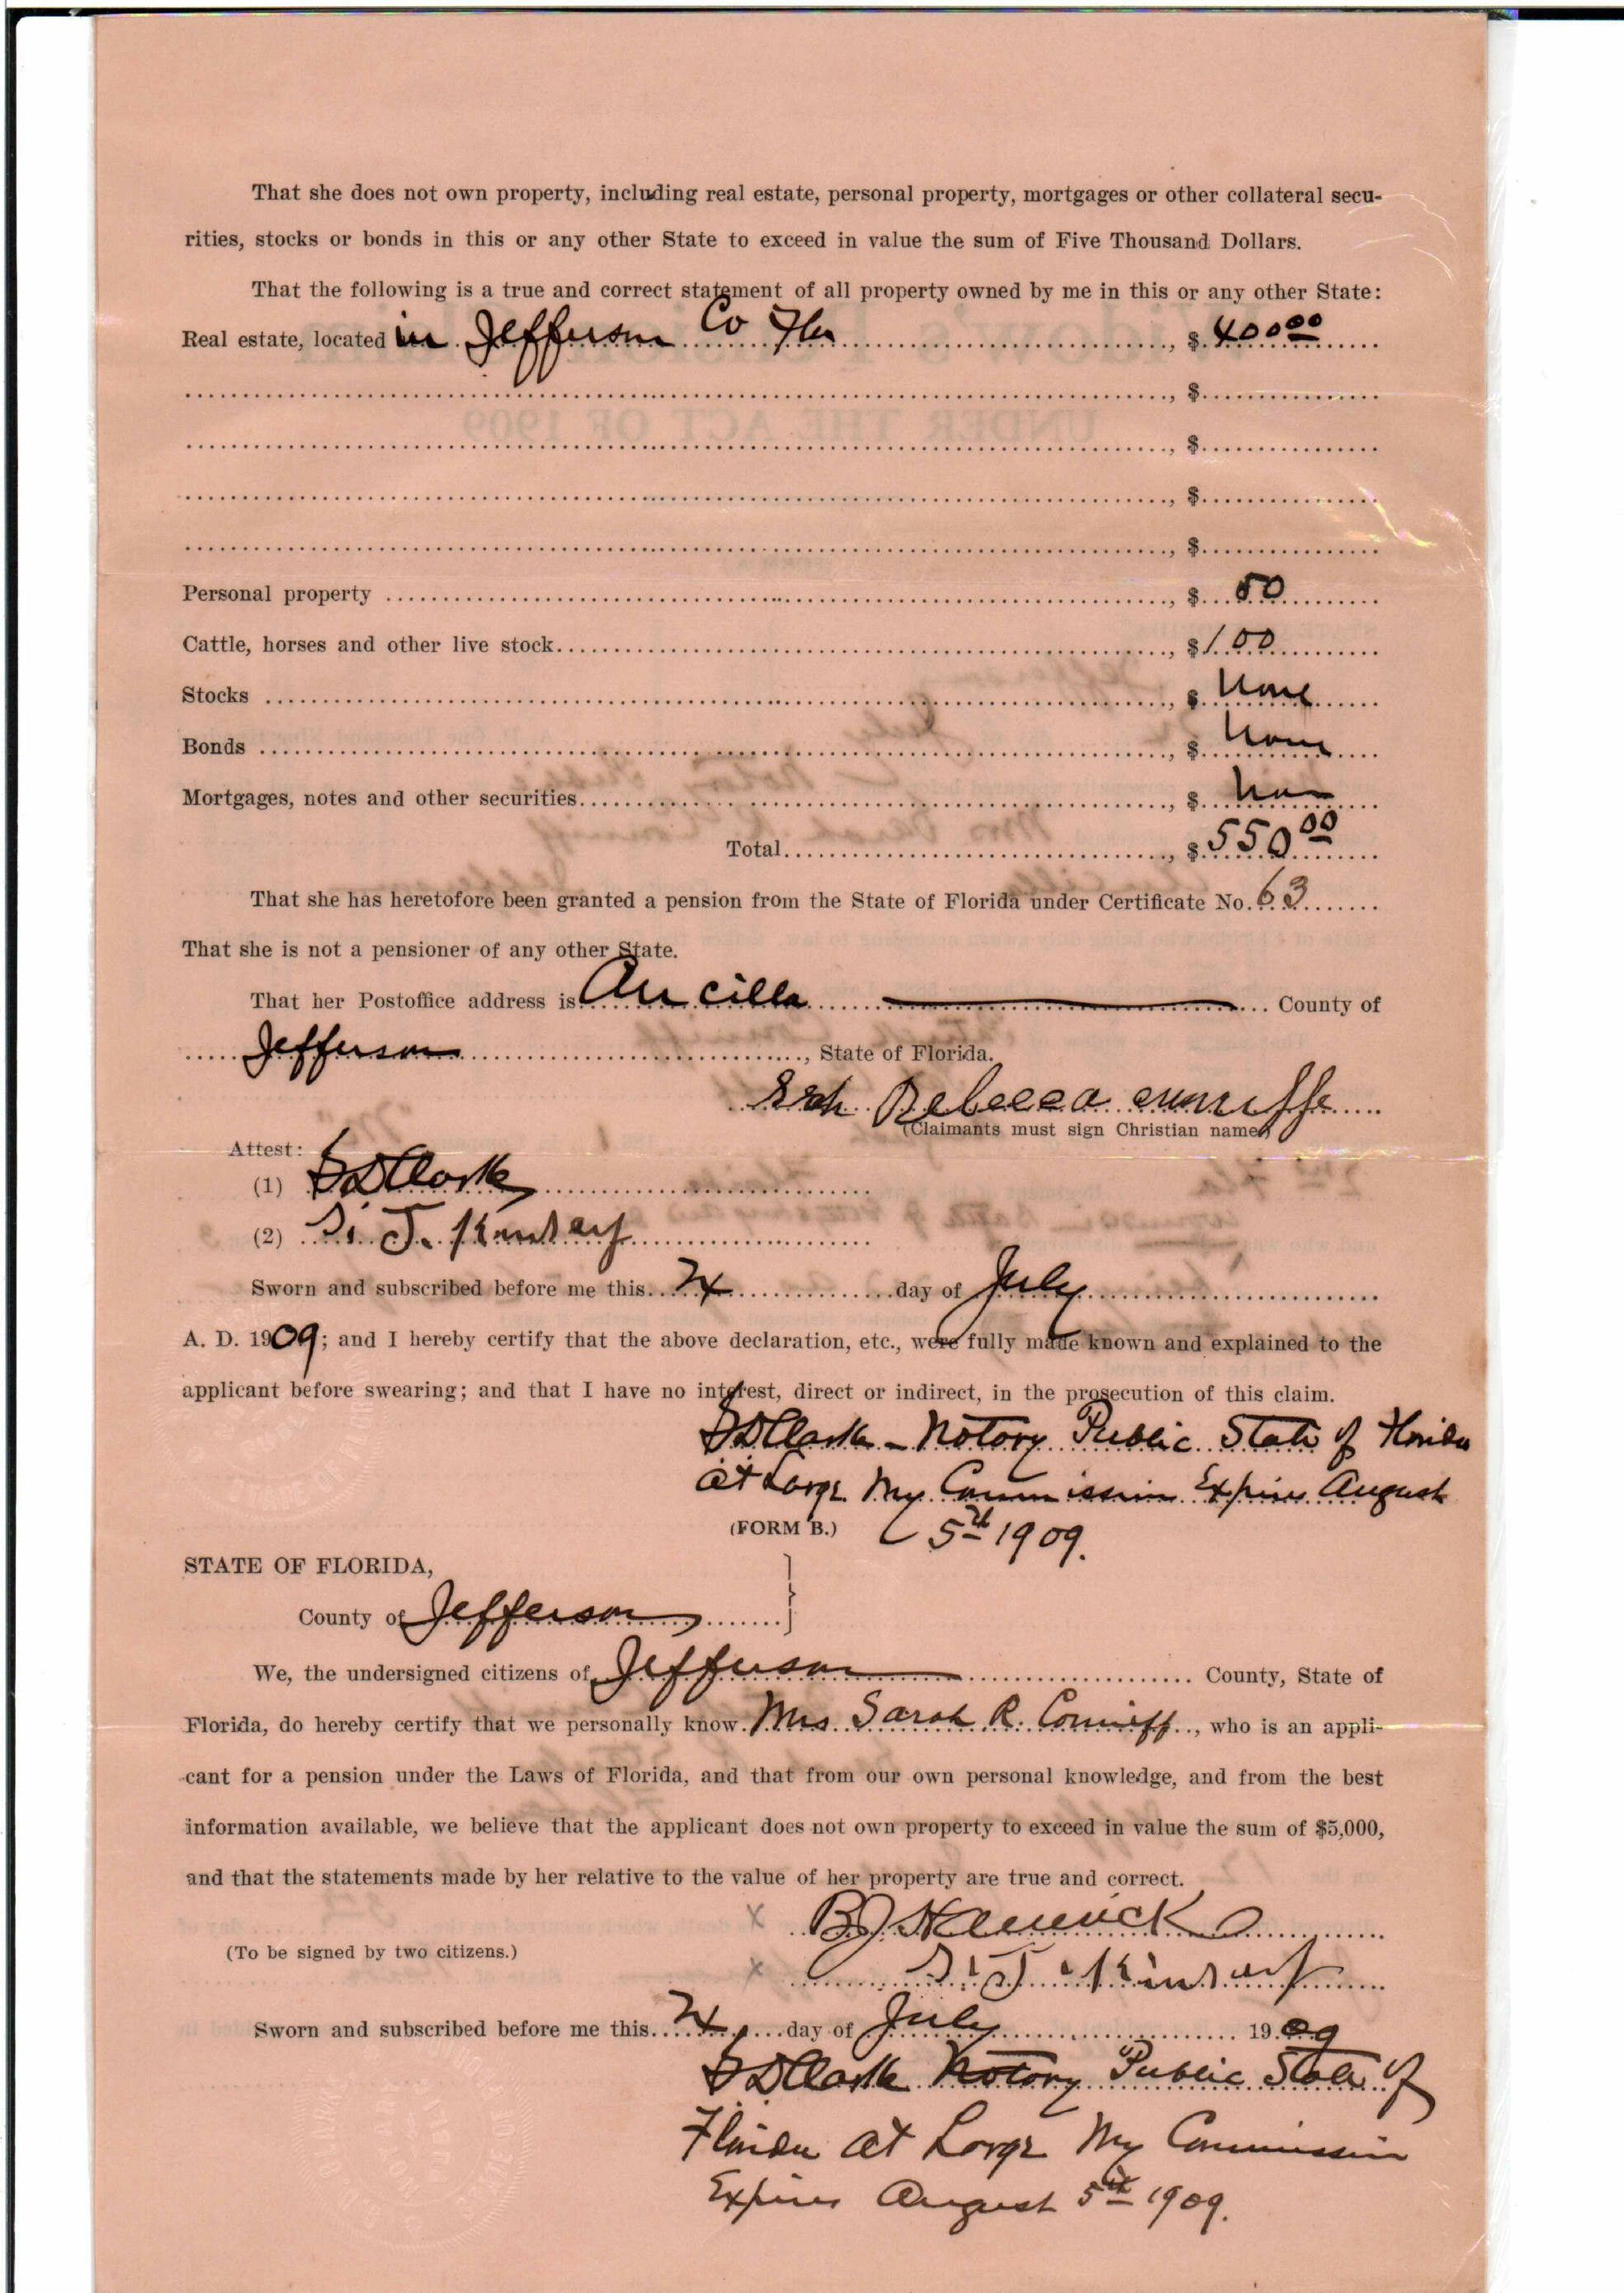 That she does not own property, including real estate, personal property, mortgages or other collateral secu-
rities, stocks or bonds in this or any other State to exceed in value the sum of Five Thousand Dollars.
That the following is a true and correct statement of all property owned by me in this or any other State:
Real estate, located in Jefferson Co Fla , $ 400 00
, $
, $
, $
, $
Personal property , $ 50
Cattle, horses and other live stock , $ 100
Stocks , $ None
Bonds , $ None
Mortgages, notes and other securities , $ non
Total , $ 550 00
That she has heretofore been granted a pension from the State of Florida under Certificate No. 63
That she is not a pensioner of any other State.
That her Postoffice address is Aucilla County of
Jefferson , State of Florida.
Rebecca
(Claimants must sign Christian name)
Attest:
(1) S D Clark
(2) S. J. Kinsey
Sworn and subscribed before me this day of July
A. D. 1909; and I hereby certify that the above declaration, etc., were fully made known and explained to the
applicant before swearing; and that I have no interest, direct or indirect, in the prosecution of this claim.
S D Clark - Notory Public State of Florida
At Large My Commission Expires August
(FORM B.) 5th 1909.
STATE OF FLORIDA,
County of Jefferson
We, the undersigned citizens of Jefferson County, State of
Florida, do hereby certify that we personally know Mrs Sarah R. Conniff , who is an appli-
cant for a pension under the Laws of Florida, and that from our own personal knowledge, and from the best
information available, we believe that the applicant does not own property to exceed in value the sum of $5,000,
and that the statements made by her relative to the value of her property are true and correct.
x
(To be signed by two citizens.)
x S. J. Kinsey
Sworn and subscribed before me this day of July 1909
S D Clark Notory Public State of
Florida At Large My Commission
Expires August 5th 1909.